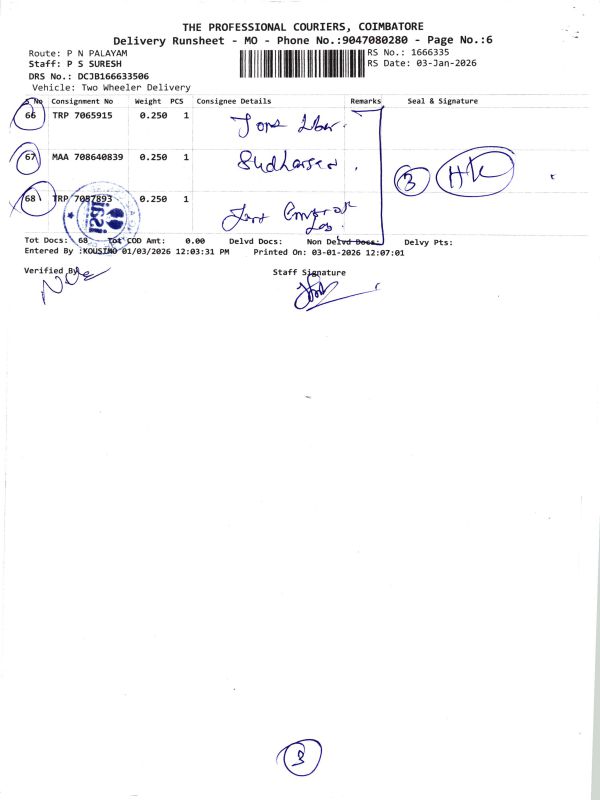 THE PROFESSIONAL COURIERS, COIMBATORE
Delivery Runsheet - MO - Phone No.:9047080280 - Page No.:6
Route: P N PALAYAM RS No.: 1666335
Staff: P S SURESH RS Date: 03-Jan-2026
DRS No.: DCJB166633506
Vehicle: Two Wheeler Delivery
S No Consignment No Weight PCS Consignee Details Remarks Seal & Signature
66 TRP 7065915 0.250 1
67 MAA 708640839 0.250 1 Sudharsan
3 Hk
68 TRP 7087893 0.250 1
Tot Docs: 68 Tot COD Amt: 0.00 Delvd Docs: Non Delvd Docs: Delvy Pts:
Entered By :KOUSIMO 01/03/2026 12:03:31 PM Printed On: 03-01-2026 12:07:01
Verified By Staff Signature
3